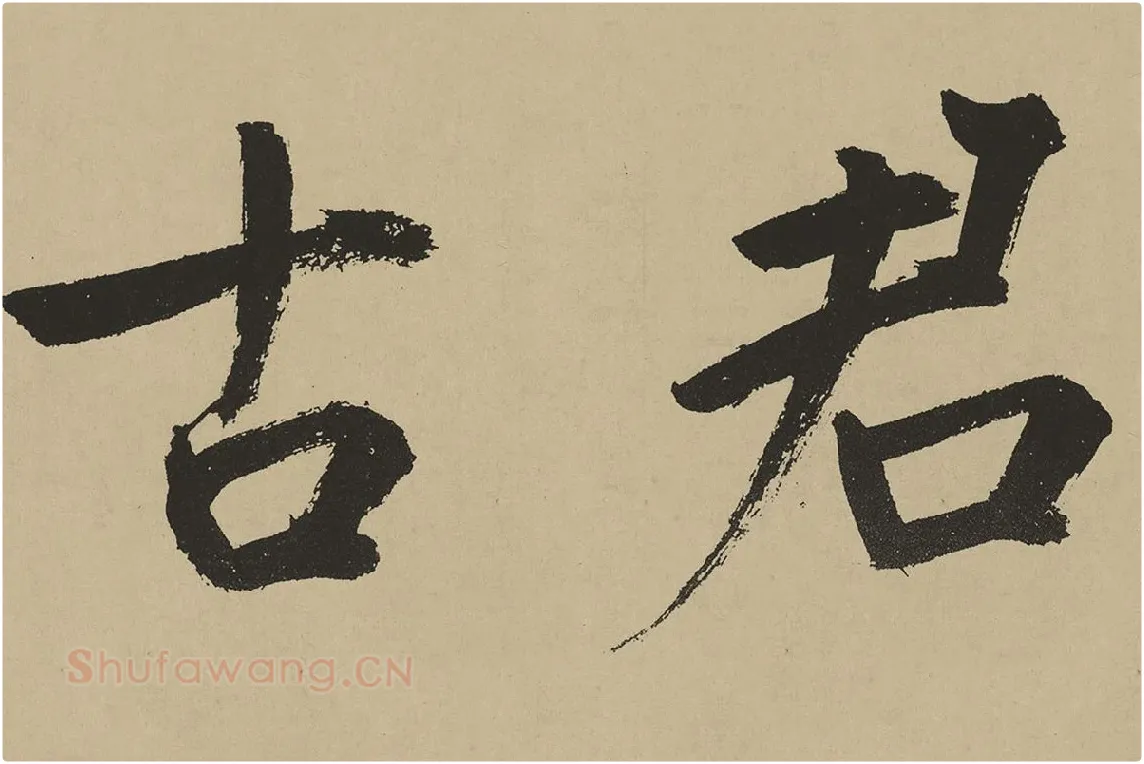 若
古
Shufawang.CN